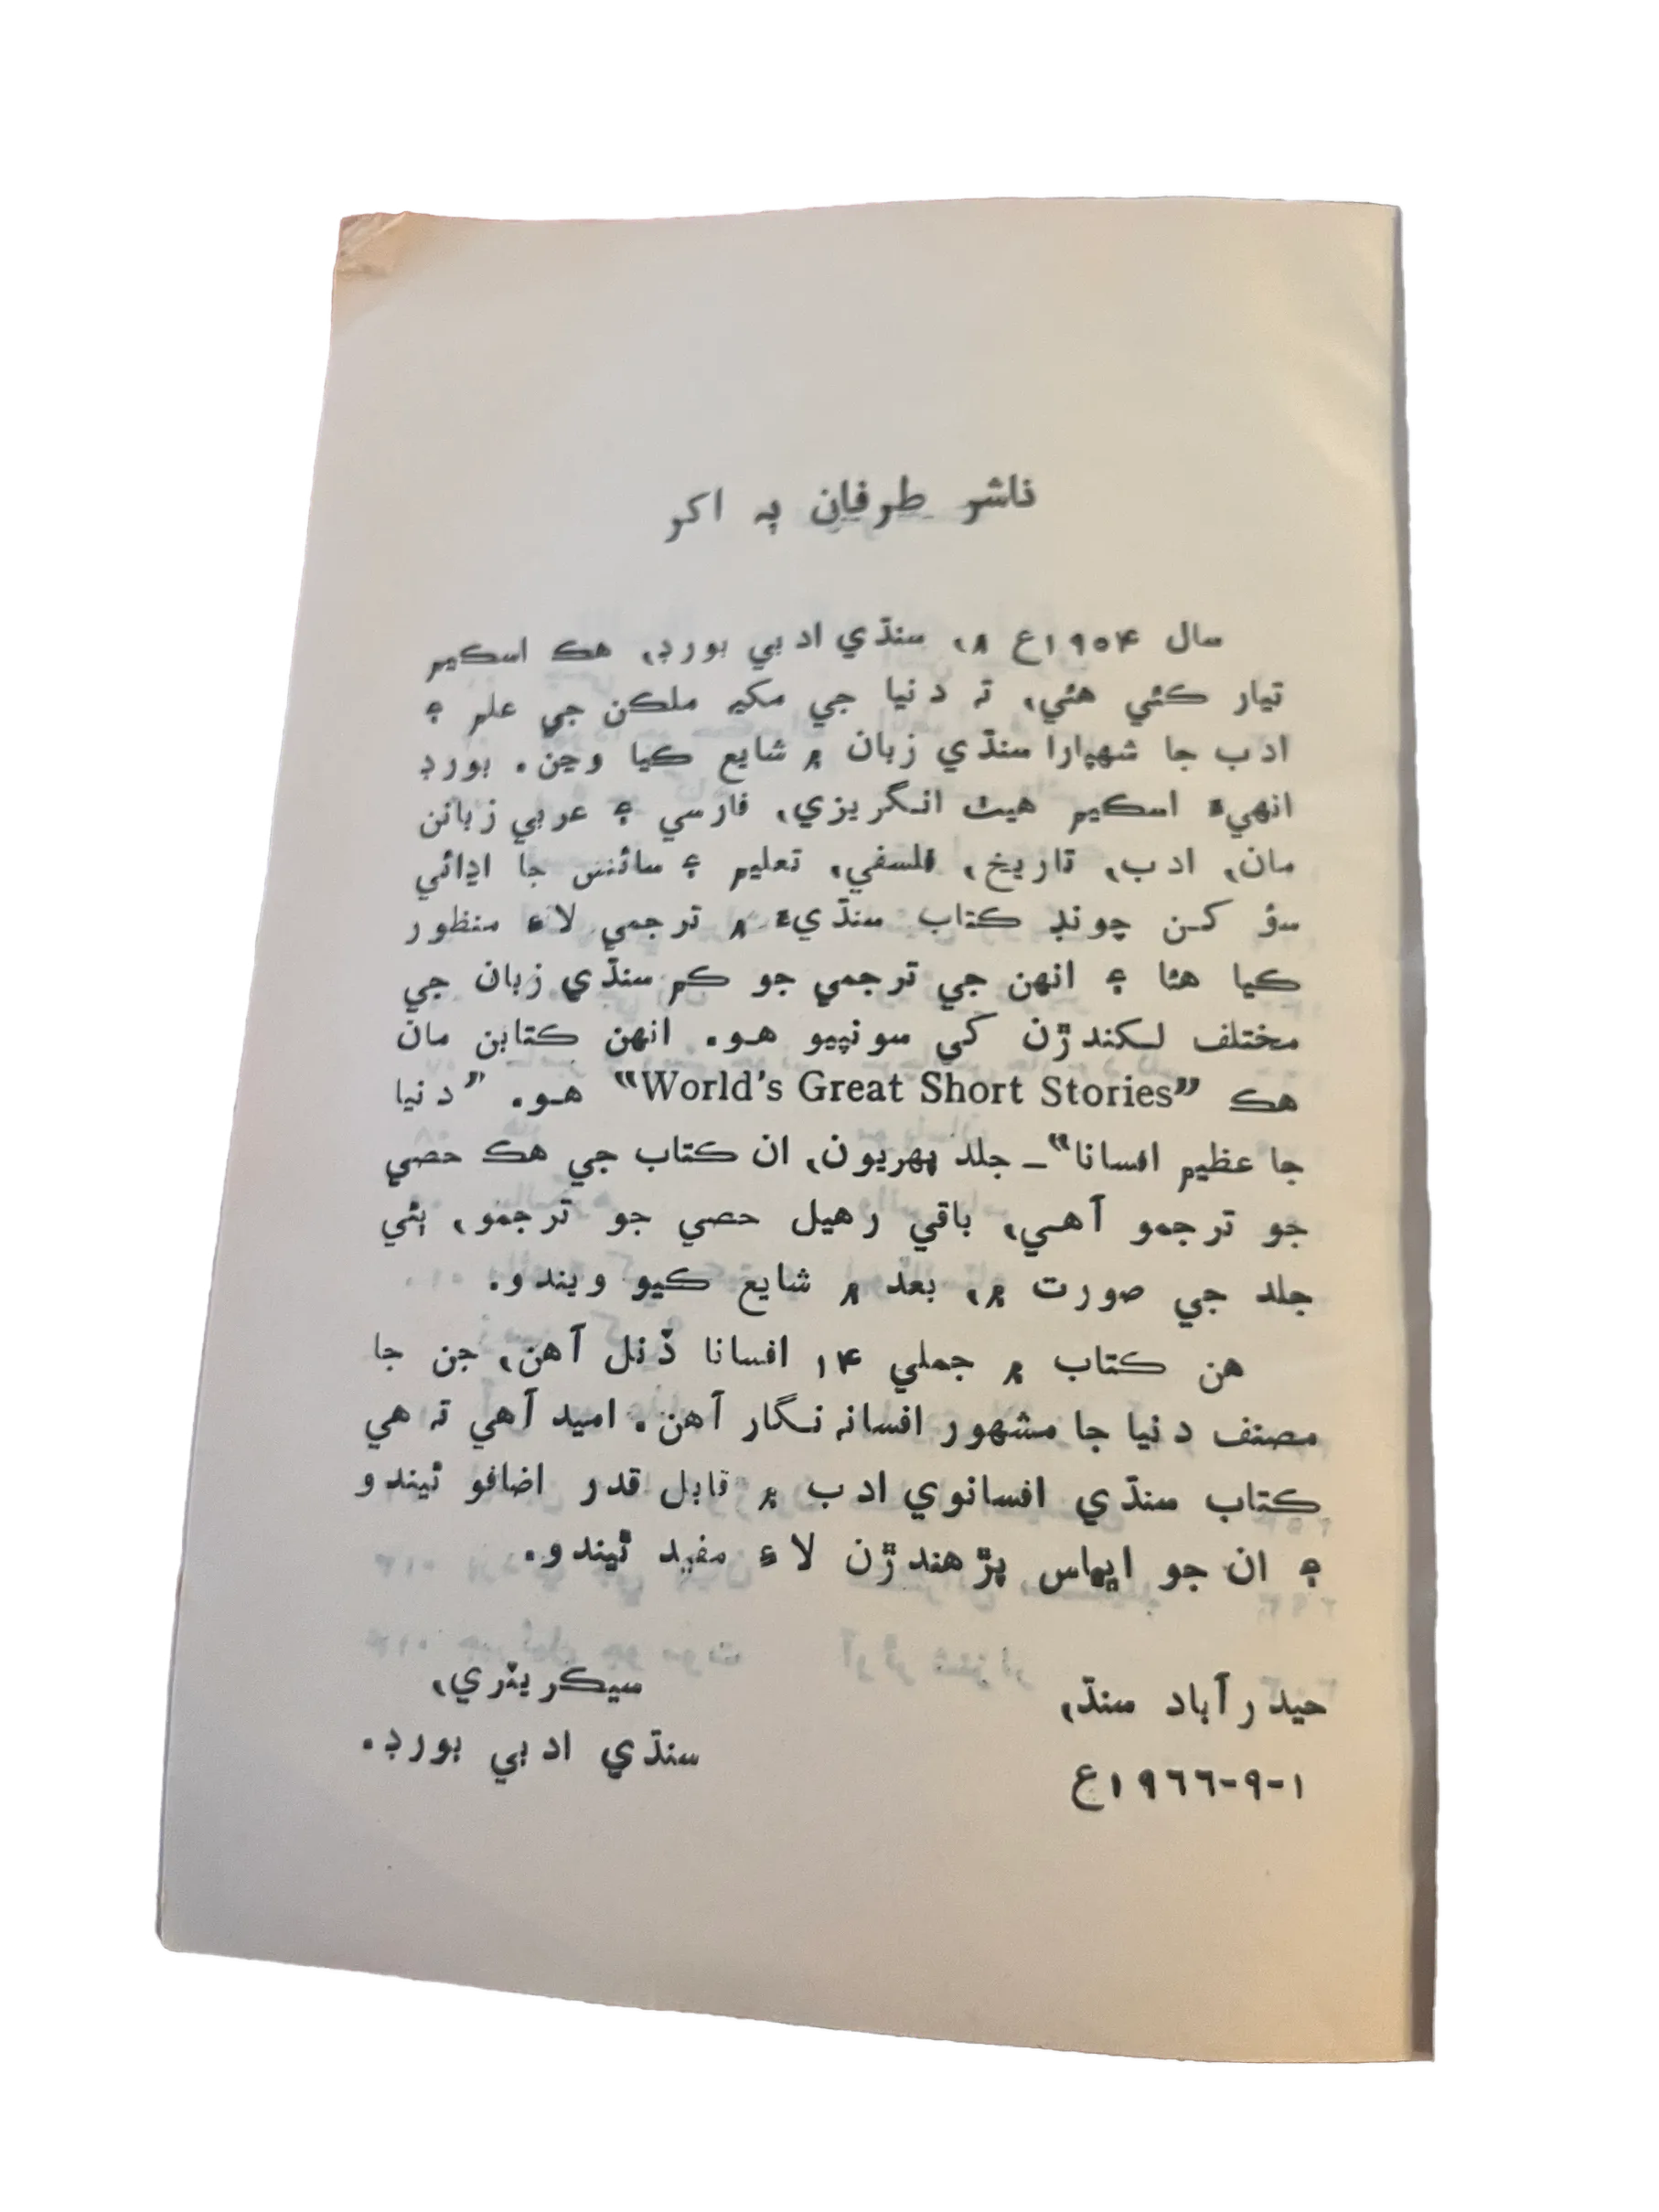 ناشر طرفان ٻہ اکر
سال ١٩٥۴ع ۾، سنڌي ادبي بورڊ، هڪ اسڪيم
تيار ڪئي هئي، تہ دنيا جي مکيہ ملڪن جي علم ۽
ادب جا شهپارا سنڌي زبان ۾ شايع ڪيا وڃن. بورڊ
انهيءَ اسڪيم هيٺ انگريزي، فارسي ۽ عربي زبانن
مان، ادب، تاريخ، فلسفي، تعليم ۽ سائنس جا اڍائي
سؤ کن چونڊ ڪتاب سنڌيءَ ۾ ترجمي لاءِ منظور
ڪيا هئا ۽ انهن جي ترجمي جو ڪم سنڌي زبان جي
مختلف لکندڙن کي سونپيو هو. انهن ڪتابن مان
هڪ ”World's Great Short Stories“ هو. ”دنيا
جا عظيم افسانا“ـ جلد پهريون، ان ڪتاب جي هڪ حصي
جو ترجمو آهي، باقي رهيل حصي جو ترجمو، ٻئي
جلد جي صورت ۾، بعد ۾ شايع ڪيو ويندو.
هن ڪتاب ۾ جملي ١۴ افسانا ڏنل آهن، جن جا
مصنف دنيا جا مشهور افسانہ نگار آهن. اميد آهي تہ هي
ڪتاب سنڌي افسانوي ادب ۾ قابل قدر اضافو ٿيندو
۽ ان جو اڀياس پڙهندڙن لاءِ مفيد ٿيندو.
حيدرآباد سنڌ،
١-٩-١٩٦٦ع
سيڪريٽري،
سنڌي ادبي بورڊ.